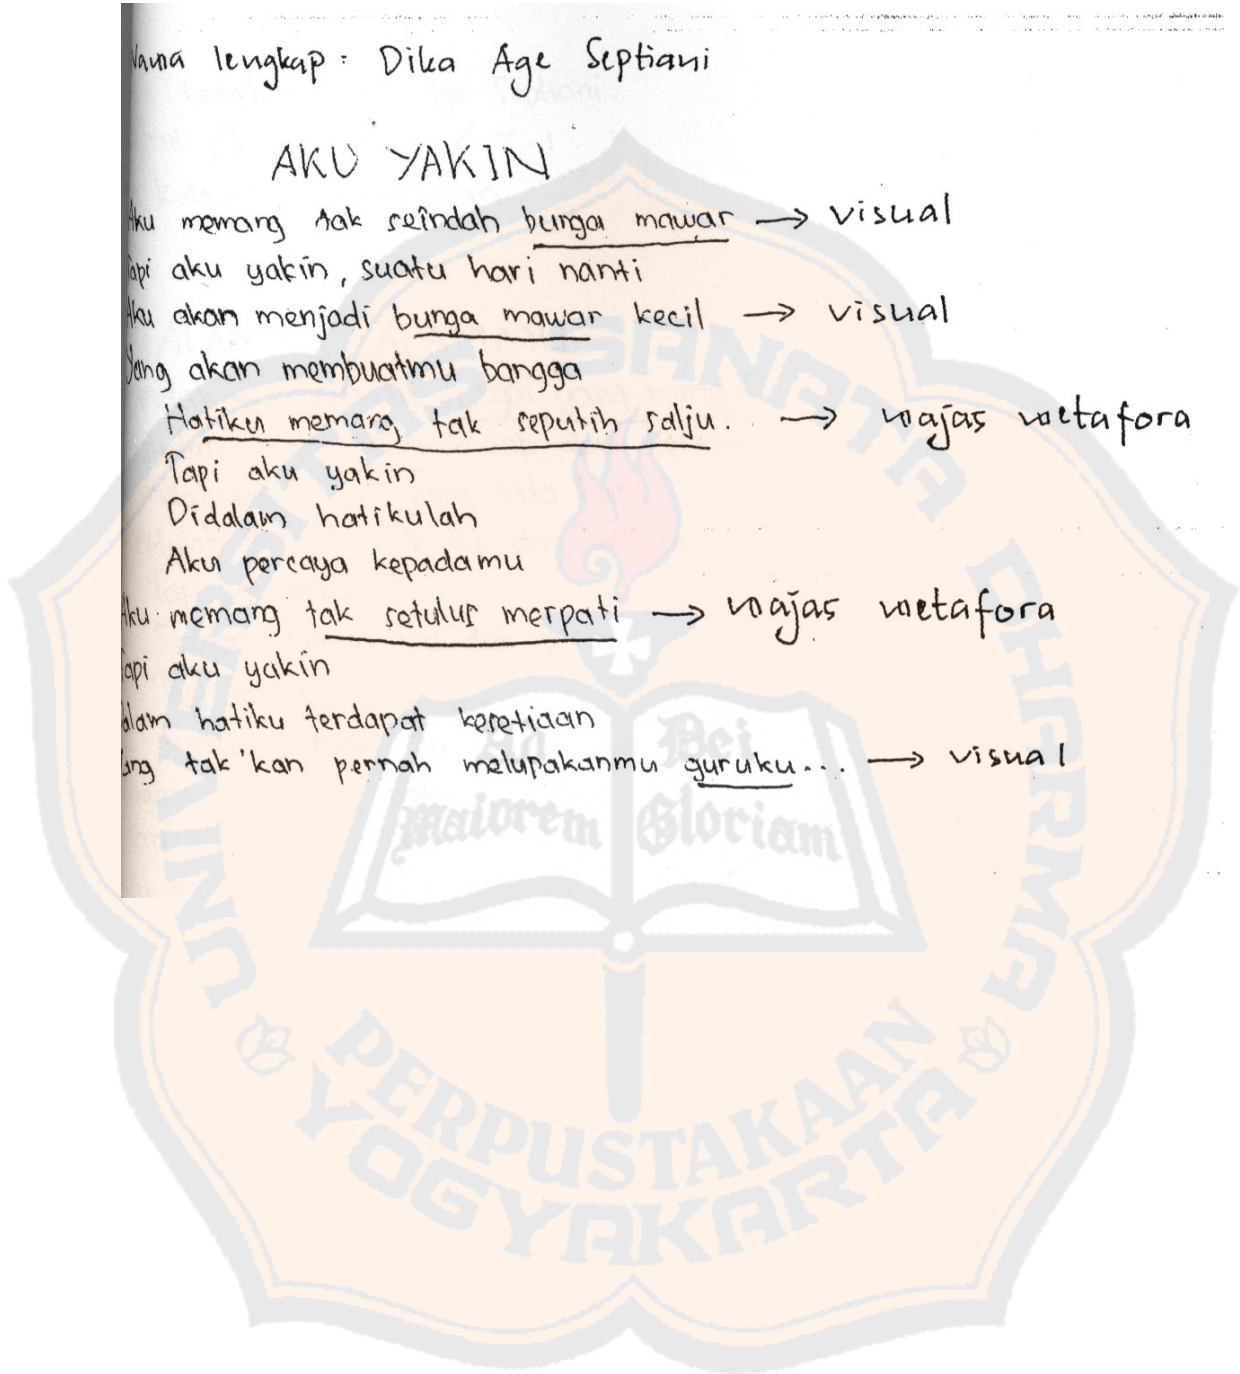 Nama lengkap : Dika Age Septiani
AKU YAKIN
Aku memang tak seindah bunga mawar → visual
Tapi aku yakin, suatu hari nanti
Aku akan menjadi bunga mawar kecil → visual
Yang akan membuatmu bangga
Hatiku memang tak seputih salju. → majas metafora
Tapi aku yakin
Didalam hatikulah
Aku percaya kepadamu
Aku memang tak setulus merpati → majas metafora
Tapi aku yakin
Dalam hatiku terdapat kesetiaan
Yang tak'kan pernah melupakanmu guruku... → visual
UNIVERSITAS SANATA DHARMA
Ad Dei
Maiorem Gloriam
PERPUSTAKAAN
YOGYAKARTA